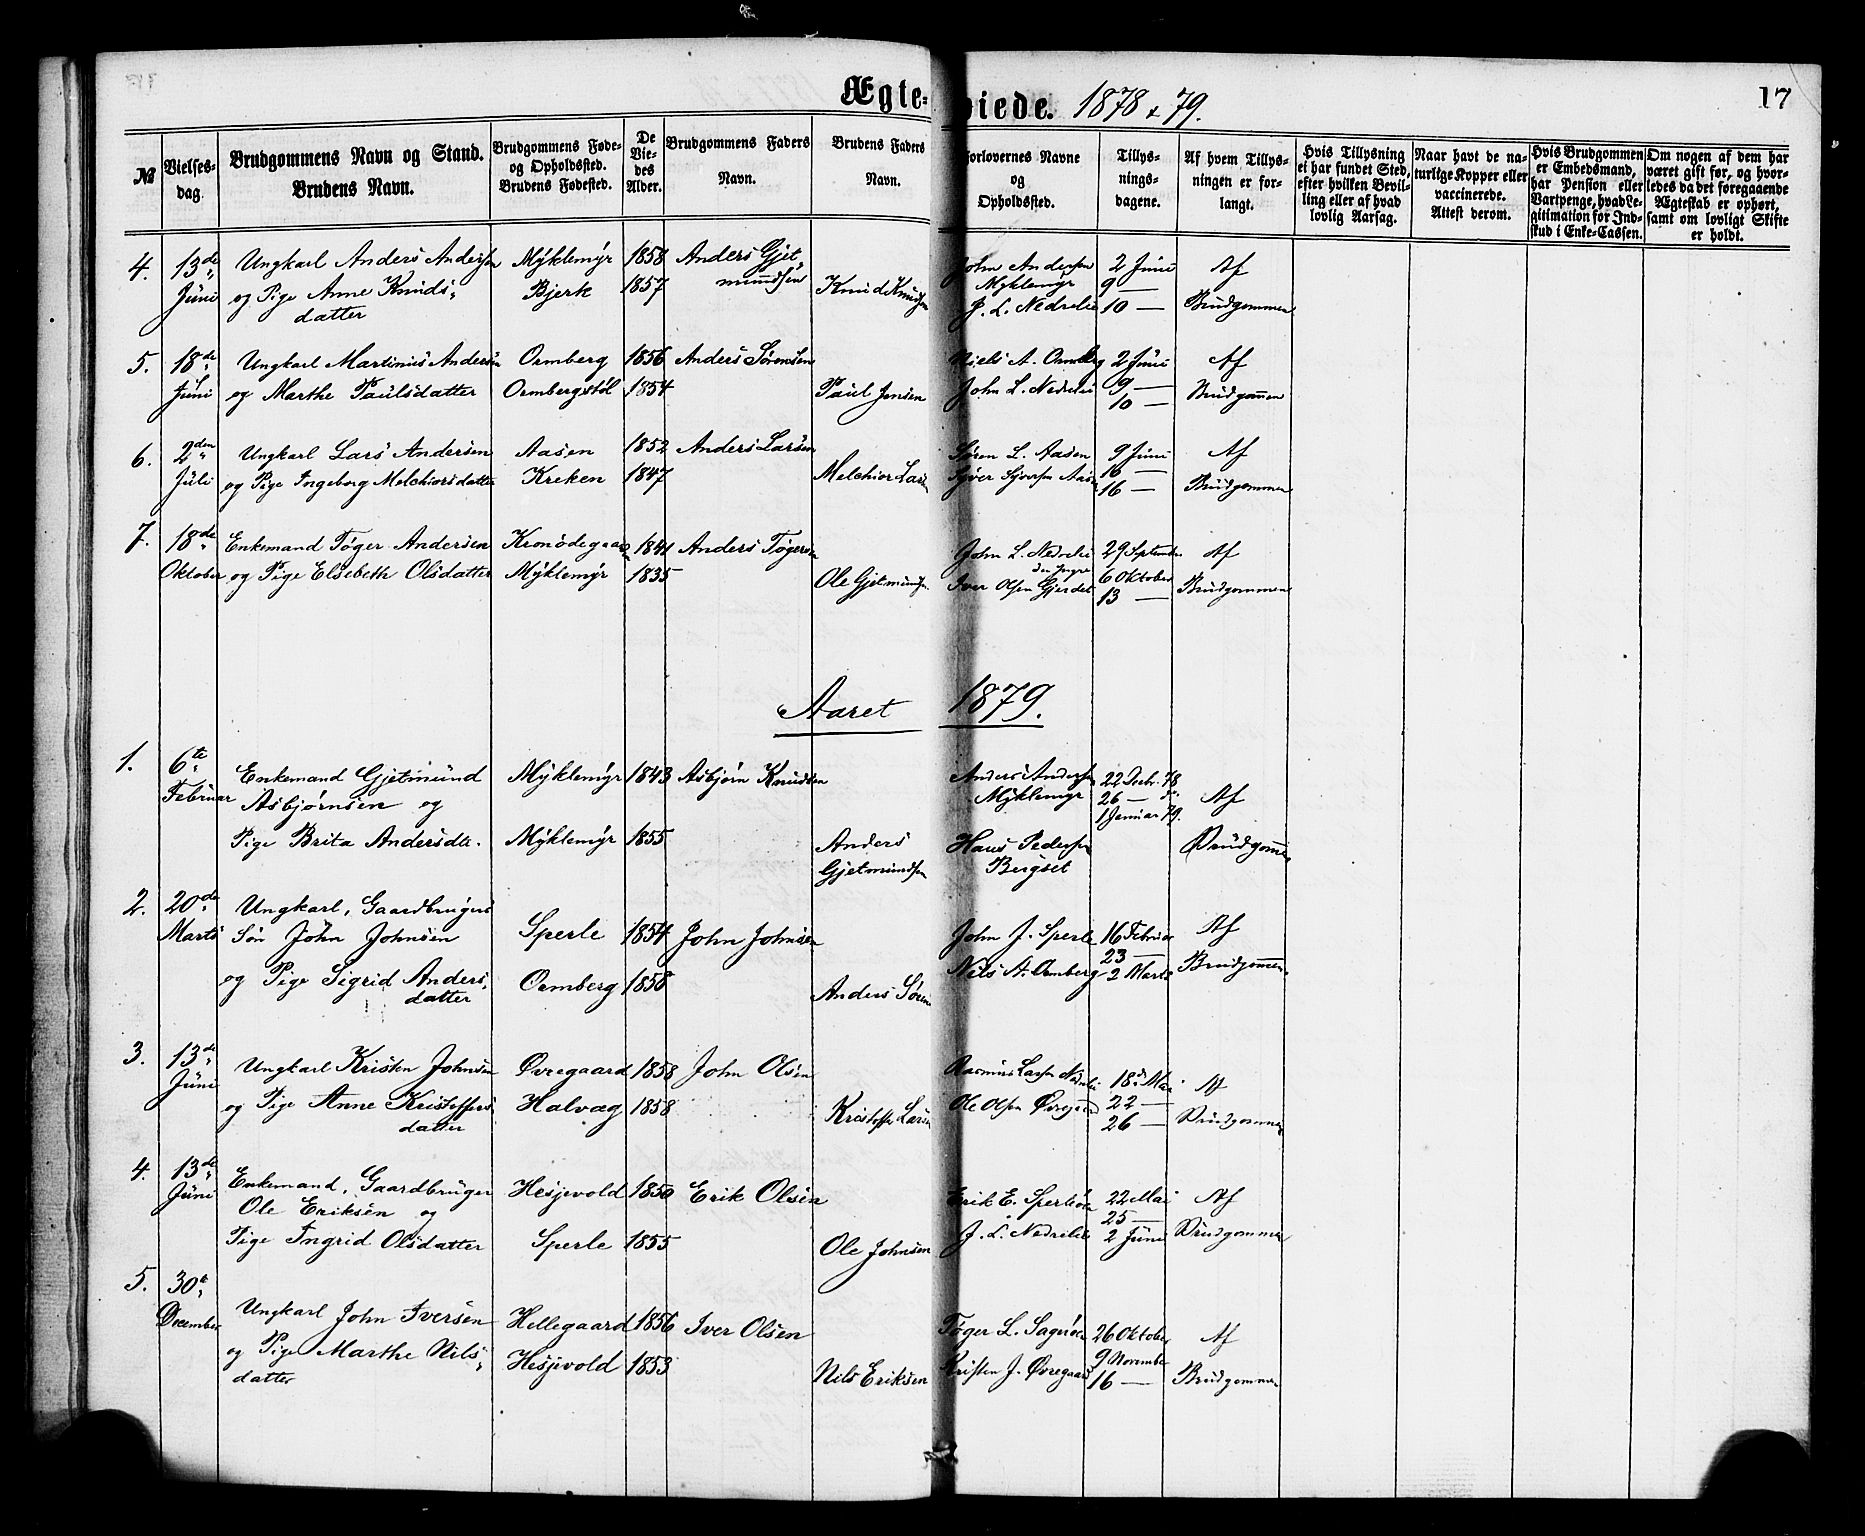 Ægteviede. 1878 & 79.
17
№
Vielses-dag.
Brudgommens Navn og Stand.
Brudens Navn.
Brudgommens Føde- og Opholdssted.
Brudens Fødested.
De Vie-des Alder.
Brudgommens Faders Navn.
Brudens Faders Navn.
Forlovernes Navne og Opholdssted.
Tillys-nings-dagene.
Af hvem Tillys-ningen er for-langt.
Hvis Tillysning ei har fundet Sted, efter hvilken Bevil-ling eller af hvad lovlig Aarsag.
Naar havt de na-turlige Kopper eller vaccinerede. Attest derom.
Hvis Brudgommen er Embedsmand, har Pension eller Vartpenge, hvad Le-gitimation for Ind-skud i Enke-Cassen.
Om nogen af dem har været gift før, og hvor-ledes da det foregaaende Ægteskab er ophørt, samt om lovligt Skifte er holdt.
4. 13de Ungkarl Anders Andersen Myklemyr 1858 Anders Gjet- John Andersen 2 Juni Af
Juni og Pige Anne Knuds- Bjerk 1857 mundsen Knud Knudsen Myklemyr 9 —
datter J. L. Nedrelie 10 — Brudgommen
5. 18de Ungkarl Martinus Andersen Ormberg 1856 Anders Sørensen Niels A. Ormberg 2 Juni Af
Juni og Marthe Paulsdatter Ormbergstøl 1854 Paul Jensen John L. Nedrelie 9 — Brudgommen
10 —
6. 2den Ungkarl Lars Andersen Aasen 1852 Anders Larsen Søren L. Aasen 9 Juni Af
Juli og Pige Ingeborg Melchiorsdatter Kreken 1847 Melchior Larsen Sjver Sjversen Aasen 16 —
16 — Brudgommen
7. 18de Enkemand Tøger Andersen Kronödegaarden 1841 Anders Tøgersen John L. Nedrelie 29 September Af
den Yngre
Oktober og Pige Elsebeth Olsdatter Myklemyr 1835 Ole Gjetmundsen Iver Olsen Gjerdet 6 Oktober Brudgommen
13 —
Aaret 1879.
1. 6te Enkemand Gjetmund Myklemyr 1843 Asbjørn Knudsen Anders Andersen 22 Decbr. 78
Februar Asbjørnsen og Myklemyr 26 — do. Af
1 Januar 79.
Pige Brita Andersdtr. Myklemyr 1855 Anders Hans Pedersen Brudgommen
Gjetmundsen Bergset
2. 20de Ungkarl, Gaardbrugers
Marts Søn John Johnsen Sperle 1854 John Johnsen John J. Sperle 16 Februar Af
23 —
og Pige Sigrid Anders- Ormberg 1858 Anders Sørensen Nils A. Ormberg 2 Marts Brudgommen.
datter
3. 13de Ungkarl Kristen Johnsen Øvregaard 1858 John Olsen Rasmus Larsen Nedrelie 18de Mai Af
Juni og Pige Anne Kristoffers- Halvæg 1858 Kristoffer Larsen Ole Olsen Øvregaard 22 —
datter 26 — Brudgommen
4. 13de Enkemand, Gaardbruger Hesjevold 1850 Erik Olsen Erik E. Sperleøen 22 Mai Af
Juni Ole Eriksen og 25 —
Pige Ingrid Olsdatter Sperle 1855 Ole Johnsen J. L. Nedrelie 2 Juni Brudgommen
5. 30te
December Ungkarl John Iversen Hellegaard 1856 Iver Olsen Tøger L. Sagøien 26 Oktober Af
og Pige Marthe Nils- Hesjevold 1853 Nils Eriksen Kristen J. Øvregaard 9 November
datter 16 — Brudgommen